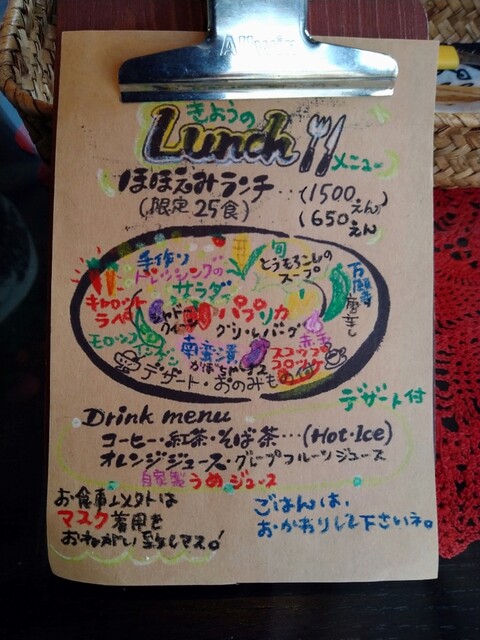 きょうの
Lunch
メニュー
ほほえみランチ…(1500えん)
(限定25食) (650えん
手作り
ドレッシングの
サラダ
旬
とうもろこしの
スープ
万願寺
唐辛し
キャロット
ラペ
パプリカ
グリーンバーグ
モロッコ
インゲン
南蛮漬
スコップ
コロッケ
デザート・おのみもの
デザート付
Drink menu
コーヒー・紅茶・そば茶…(Hot・Ice)
オレンジジュース・グレープフルーツジュース
自家製うめジュース
お食事以外は
マスク着用を
おねがい致しマス!
ごはんは、
おかわりして下さいネ。